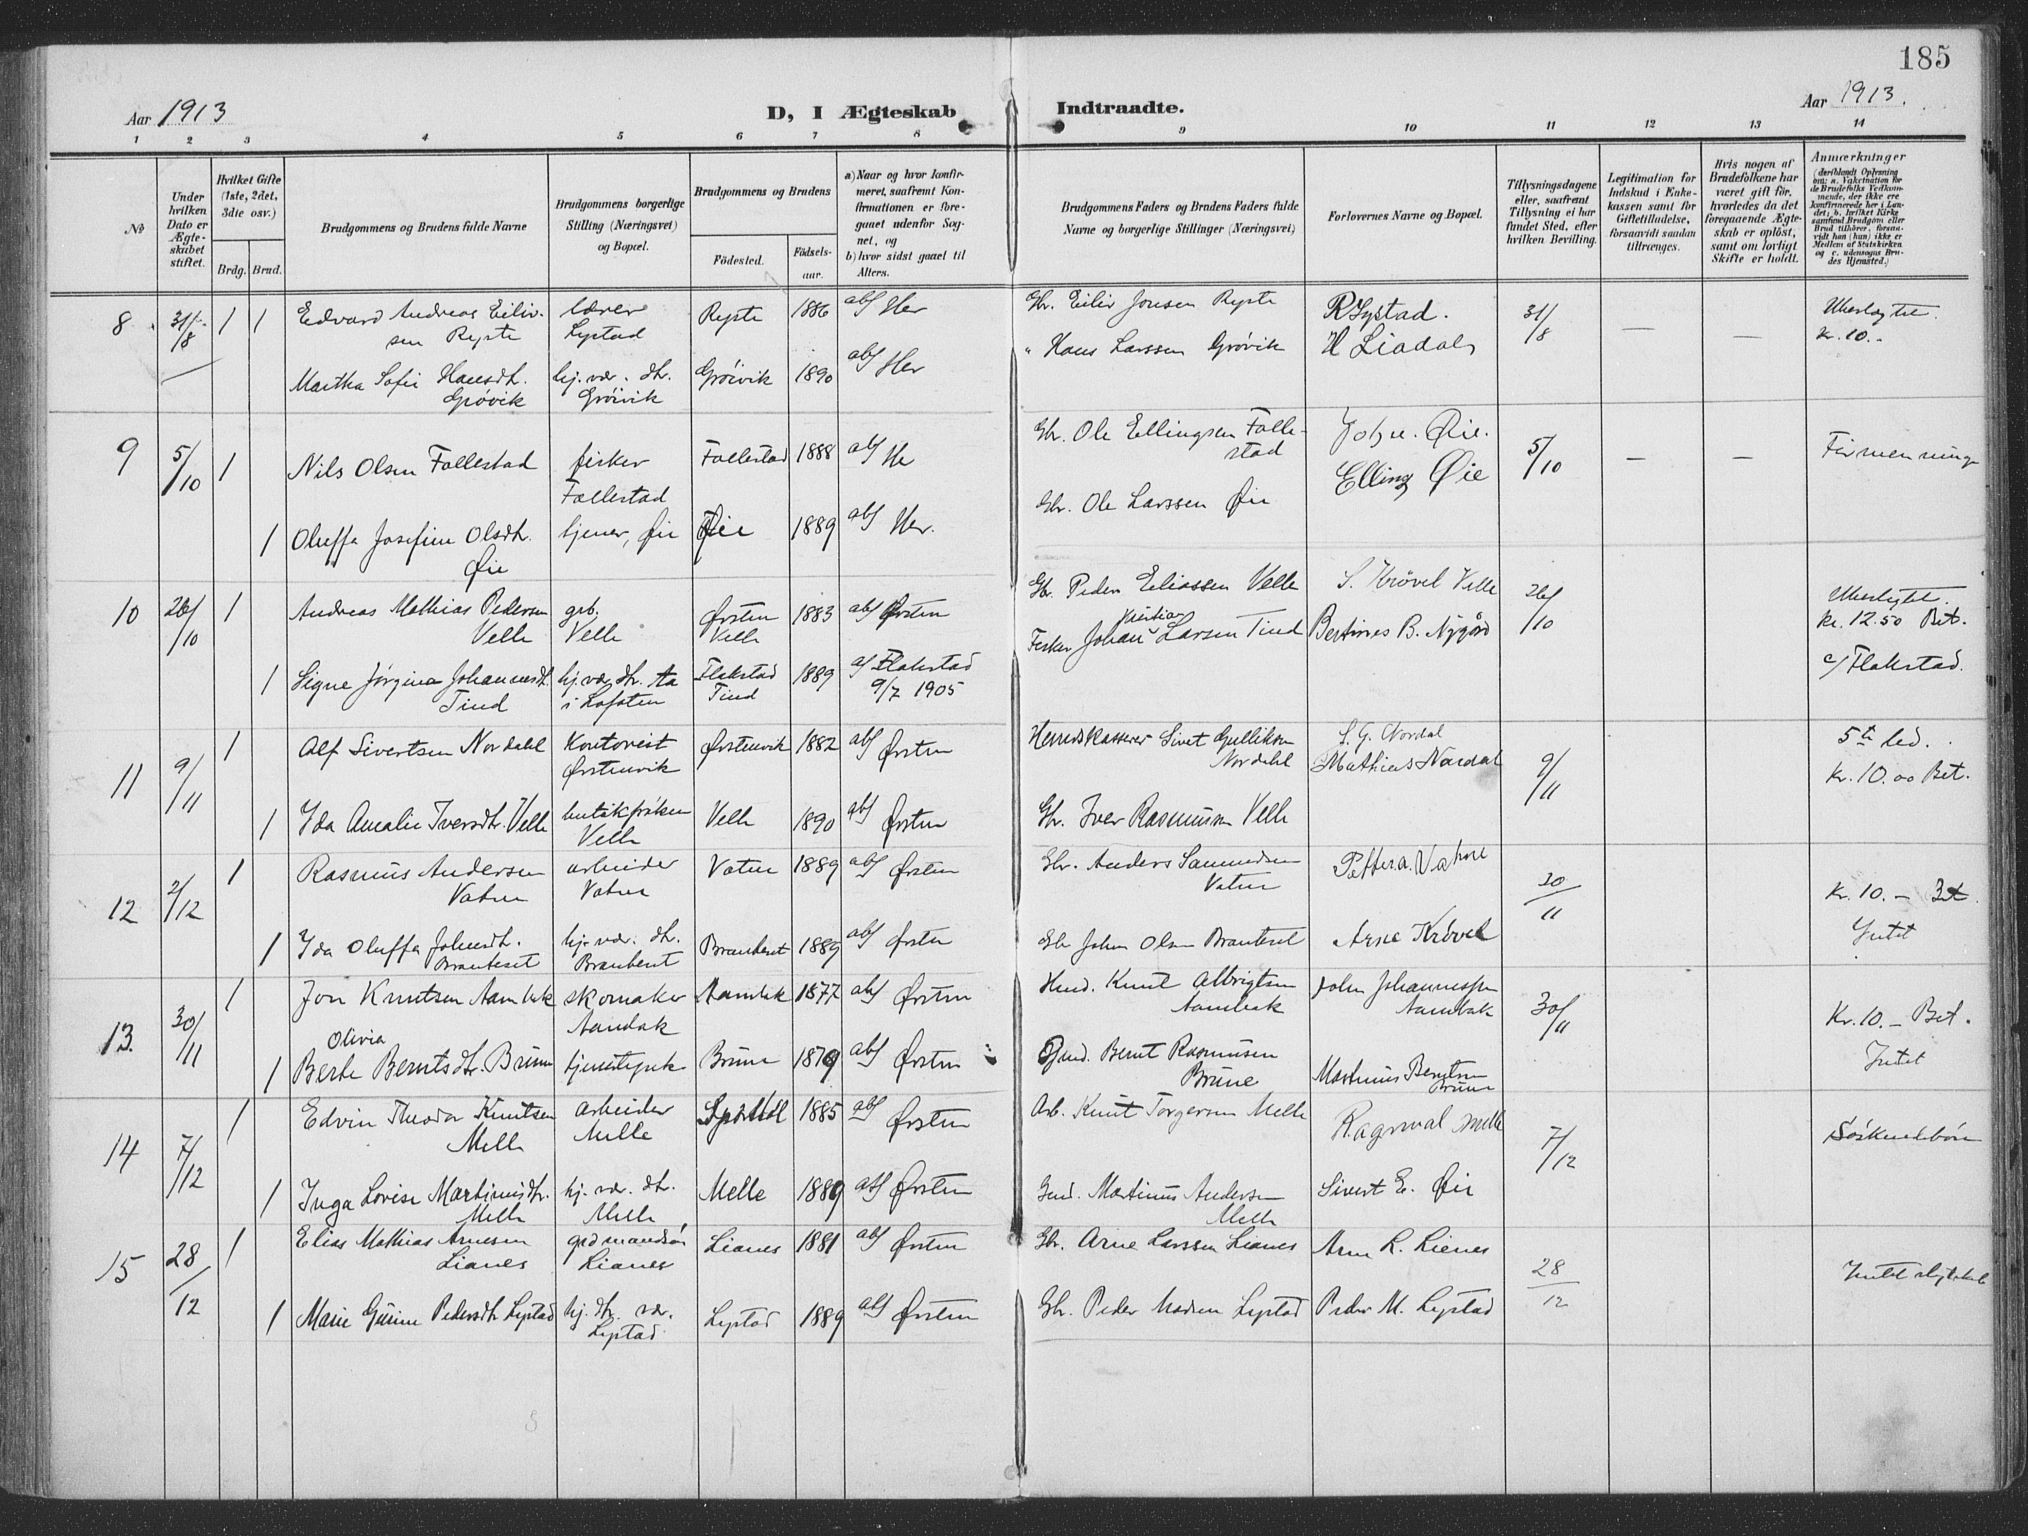 185
Aar 1913
D, I Ægteskab Indtraadte.
Aar 1913.
1 2 3 4 5 6 7 8 9 10 11 12 13 14
No
Under hvilken Dato er Ægteskabet stiftet.
Hvilket Gifte (1ste, 2det, 3die osv.)
Brdg. Brud.
Brudgommens og Brudens fulde Navne
Brudgommens borgerlige Stilling (Næringsvei) og Bopæl.
Brudgommens og Brudens
Födested.
Födselsaar.
a) Naar og hvor konfirmeret, saafremt Konfirmationen er foregaaet udenfor Sognet, og
b) hvor sidst gaaet til Alters.
Brudgommens Faders og Brudens Faders fulde Navne og borgerlige Stillinger (Næringsvei)
Forlovernes Navne og Bopæl.
Tillysningsdagene eller, saafremt Tillysning ei har fundet Sted, efter hvilken Bevilling.
Legitimation for Indskud i Enkekassen samt for Giftetilladelse, forsaavidt saadan tiltrænges.
Hvis nogen af Brudefolkene har været gift för, hvorledes da det foregaaende Ægteskab er oplöst, samt om lovligt Skifte er holdt.
Anmærkninger (deriblandt Oplysning om: a. Vakcination for de Brudefolks Vedkommende, der ikke ere konfirmerede her i Landet; b. hvilket Kirkesamfund Brudgom eller Brud tilhörer, forsaavidt han (hun) ikke er Medlem af Statskirken og c. udensogns Brudes Hjemsted.)
8 31/8 1 1 Edvard Andreas Eilivsen Rypte
lærer Lystad Rypte 1886 ab/ Her
Gbr. Eiliv Jonsen Rypte
R Lystad. 31/8 — —
kr. 10.-
Martha Sofie Hansdt. Grøvik
hj. vær. dtr. Grøivik Grøivik 1890 ab/ Her
" Hans Larssen Grøvik
H Liadal
9 5/10 1 Nils Olsen Follestad
fisker Follestad Follestad 1888 ab/ He
Gbr. Ole Ellingsen Follestad
Øie. 5/10 — —
Firmenninge
1 Oluffa Josefine Olsdt. Øie
tjener, Øie Øie 1889 ab/ Her.
Gbr. Ole Larssen Øie
Elling Øie
10 26/10 1 Andreas Mathias Pedersen Velle
grb. Velle Ørsten Velle 1883 ab/ Ørsten
Gbr. Peder Eliassen Velle
S. Krøvel Velle 26/10
kr. 12.50 Bet.
1 Signe Jørgine Johannesdt. Tind
hj. vær dtr. Aa i Lofoten Flakstad Tind 1889 a/ Flakstad 9/7 1905
Fisker Johan Kristian Larsen Tind
Bertines B. Nygård
c/ Flakstad.
11 9/11 1 Alf Sivertsen Nordahl
Kontorist Ørstenvik Ørstenvik 1882 ab/ Ørsten
Herredskasserer Sivert Gulliksen Nordahl
S. G. Nordal
Mathias Nordal 9/11
5te led.
kr. 10.00 Bet.
1 Ida Amalie Iversdtr. Velle
butikfrøken Velle Velle 1890 ab/ Ørsten
Gbr. Iver Rasmussen Velle
12 2/12 1 Rasmus Andersen Vatne
arbeider Vatne Vatne 1889 ab/ Ørsten
Gbr. Anders Samuelsen Vatne
Petter A. Vatne 30/11
Kr. 10. – Bet.
Intet
1 Ida Oluffa Johnsdt. Branteset
hj. vær. dtr. Branteset Branteset 1889 ab/ Ørsten
Gbr John Olsen Branteset
Arne Krøvel
13. 30/11 1 Jon Knutsen Aambak
skomaker Aambak Aambak 1877 ab/ Ørsten
Knut Albrigtsen Aambak
John Johannessen Aambak 30/11
Kr. 10. – Bet.
Intet
1 Olivia Berte Berntsdtr. Brune
tjenestepike Brune 1879 ab/ Ørsten
Bernt Rasmusen Brune
Martinus Berntsen Brune
14 7/12 1 Edvin Theodor Knutsen Melle
arbeider Melle 1885 ab/ Ørsten
Arb. Knut Torgersen Melle
Ragnval Melle 7/12
Søskendebørn
1 Inga Lovise Martinusdtr. Melle
hj. vær. dtr. Melle Melle 1889 ab/ Ørsten
Martinus Andersen Melle
Sivert E. Øie
15 28/12 1 Elias Mathias Arnesen Lianes
grdmandsøn Lianes Lianes 1881 ab/ Ørsten
Gbr. Arne Larssen Lianes
Arne L. Lienes 28/12
Intet slegtskab
1 Marie Gurine Pedersdtr Lystad
hj. dtr. vær. Lystad Lystad 1889 ab/ Ørsten
Gbr. Peder Madsen Lystad
Peder M. Lystad